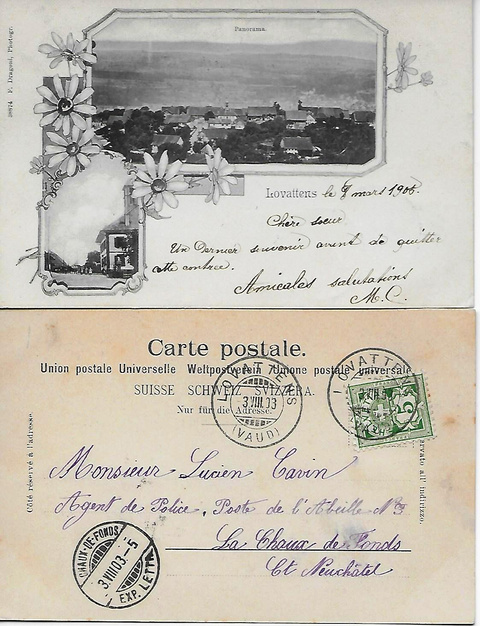 Panorama.
38874 F. Dragsel, Photogr.
Lovattens le 8 mars 1906.
Chère soeur
Un Dernier souvenir avant de quitter
cette contrée.
Amicales salutations
M. C.
Carte postale.
Union postale Universelle Weltpostverein Unione postale universale
SUISSE SCHWEIZ SVIZZERA.
Nur für die Adresse.
LOVATTENS
3.VIII.03
(VAUD)
LOVATTENS
5
Côté réservé à l'adresse.
all' indirizzo.
Monsieur Lucien Cavin
Agent de Police, Poste de l'Abeille No 3
La Chaux de Fonds
Ct Neuchâtel
CHAUX-DE-FONDS
3.VIII.03-5
EXP. LETT.